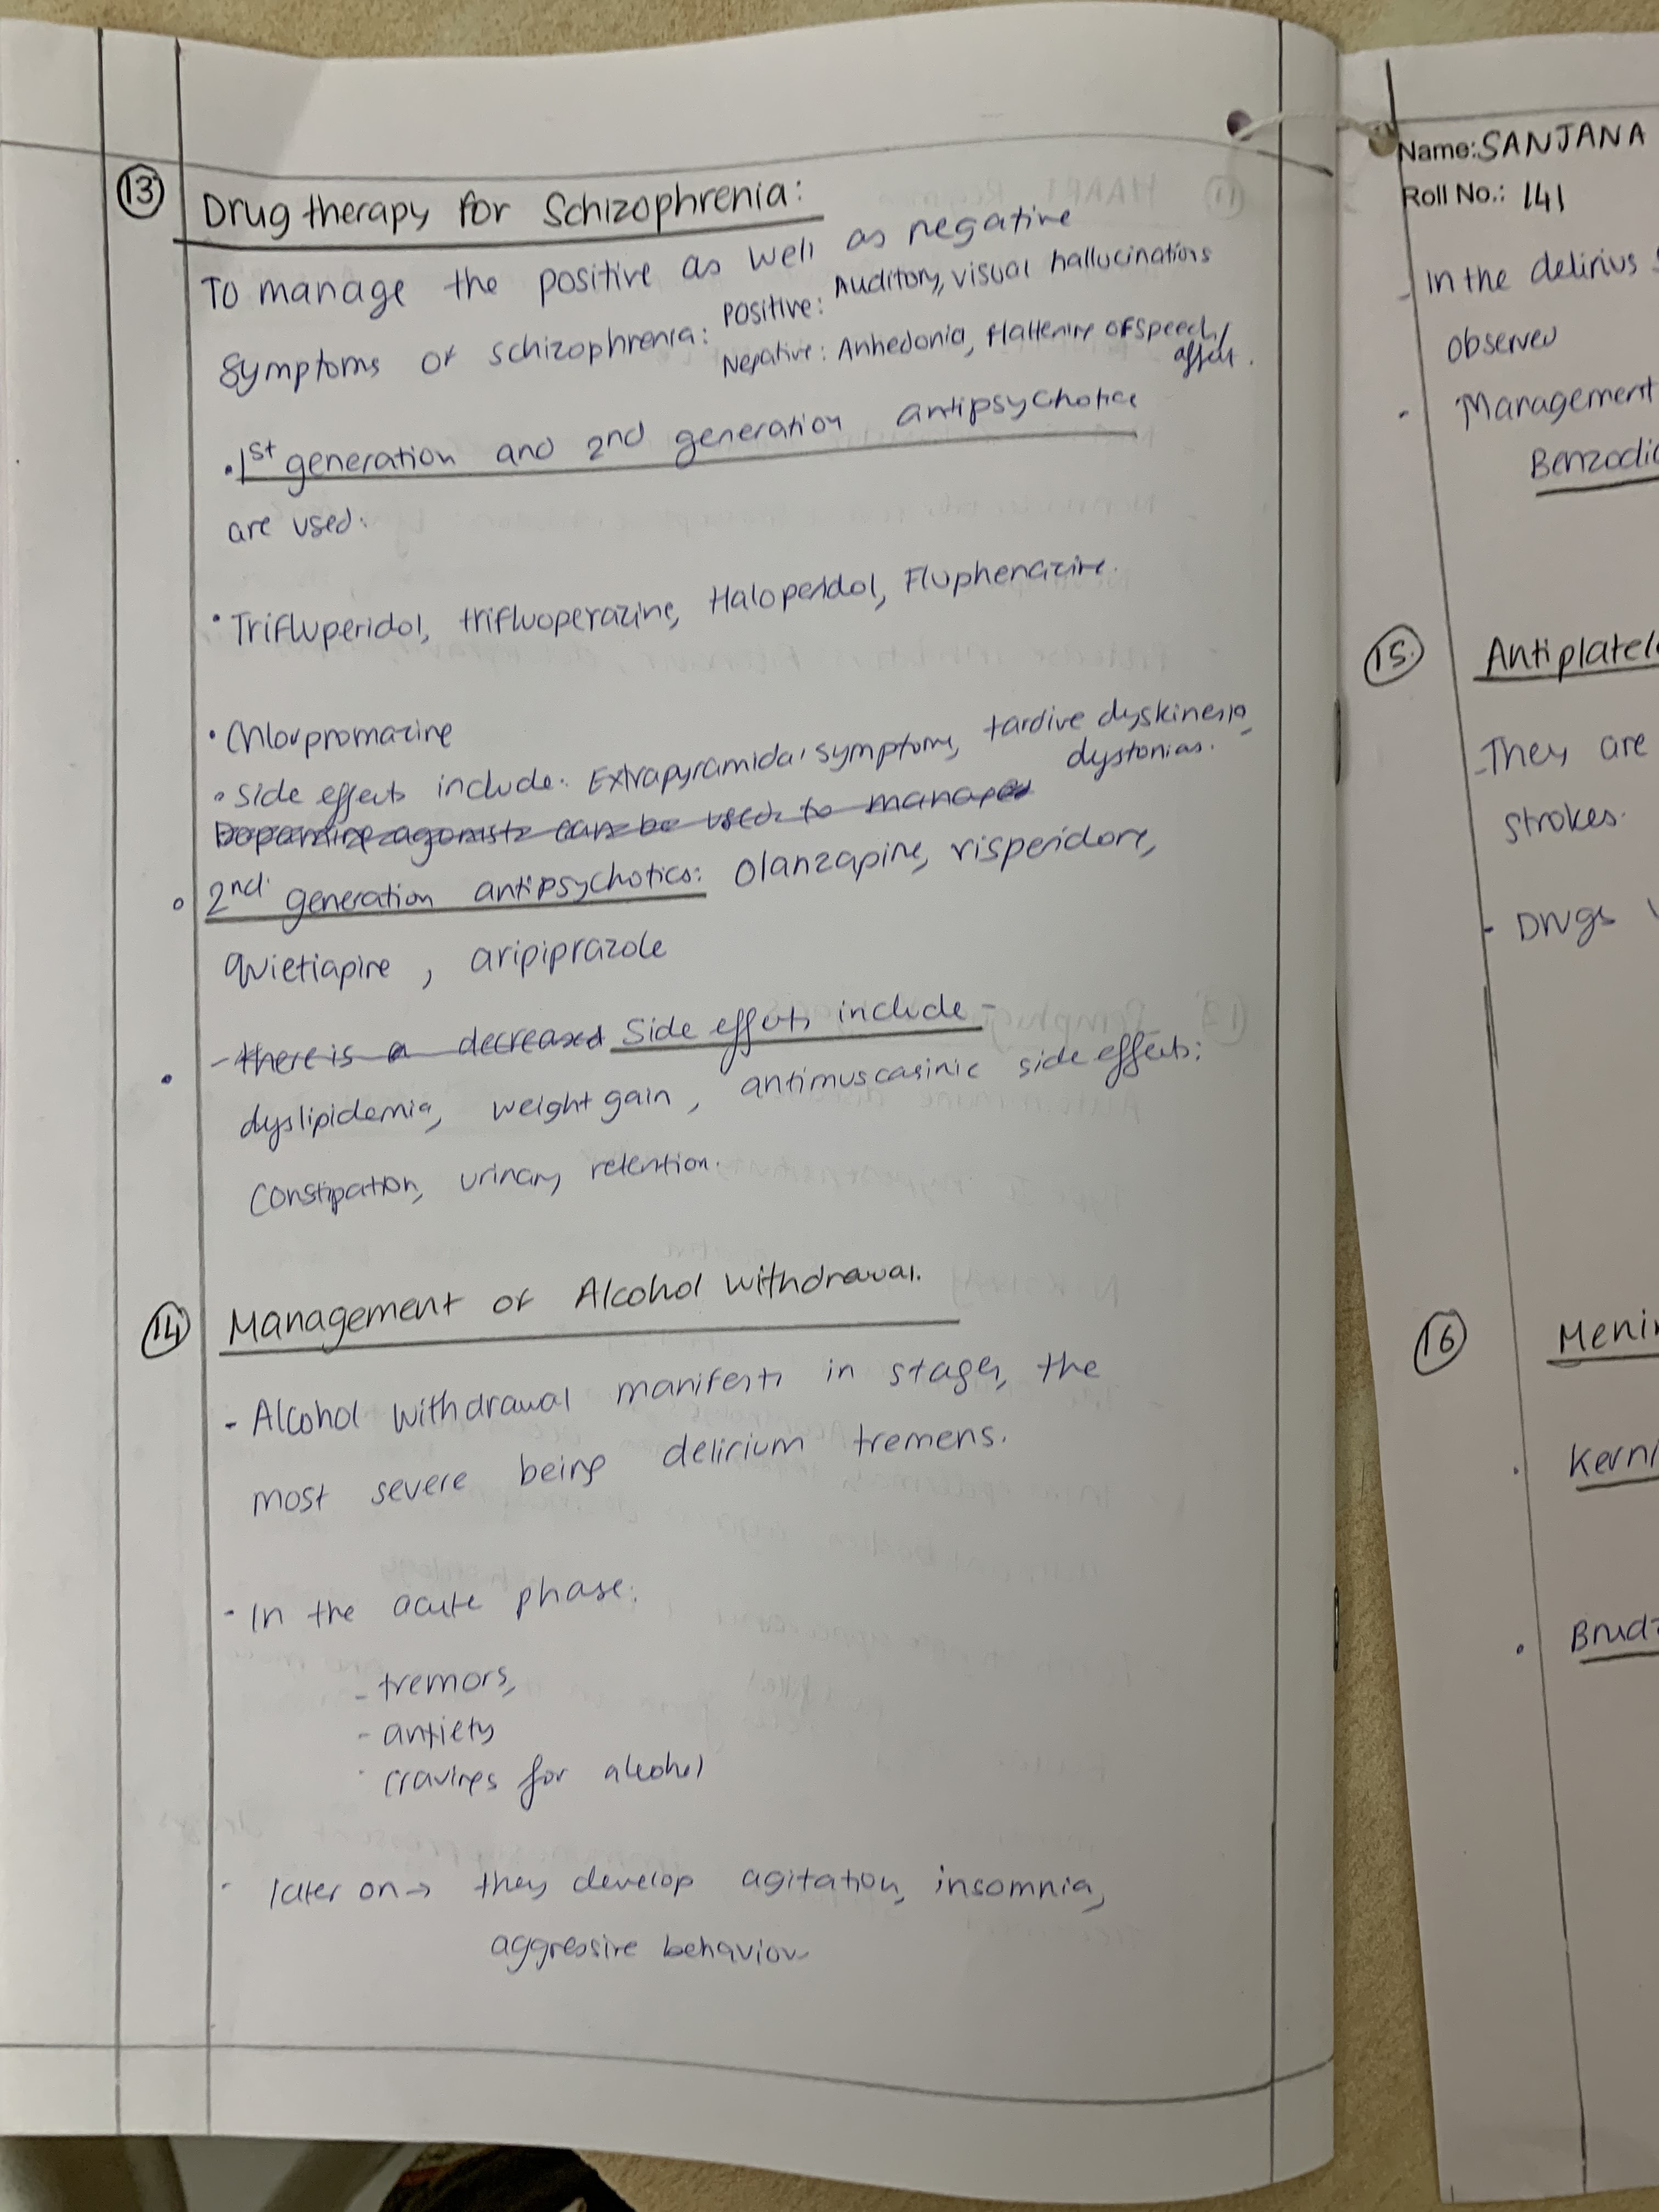 13 Drug therapy for Schizophrenia:
To manage the positive as well as negative
symptoms of schizophrenia: Positive: Auditory, visual hallucinations
Negative: Anhedonia, flattening of speech/
affect.
• 1st generation and 2nd generation antipsychotics
are used:
• Trifluperidol, trifluoperazine, Haloperidol, Fluphenazine.
• Chlorpromazine
• Side effects include: Extrapyramidal symptoms, tardive dyskinesia,
dystonias.
agonists can be used to manage
2nd generation antipsychotics: Olanzapine, risperidone,
quietiapine, aripiprazole
- there is a decreased Side effects include -
dyslipidemia, weight gain, antimuscarinic side effects:
constipation, urinary retention.
14 Management of Alcohol withdrawal.
- Alcohol withdrawal manifests in stages, the
most severe being delirium tremens.
- In the acute phase:
- tremors,
- anxiety
- cravings for alcohol
- later on → they develop agitation, insomnia,
aggressive behaviour
Name: SANJANA
Roll No.: 141
- In the delirius
observed
- Management
15. Antiplatel
- They are
strokes.
- Drugs
16